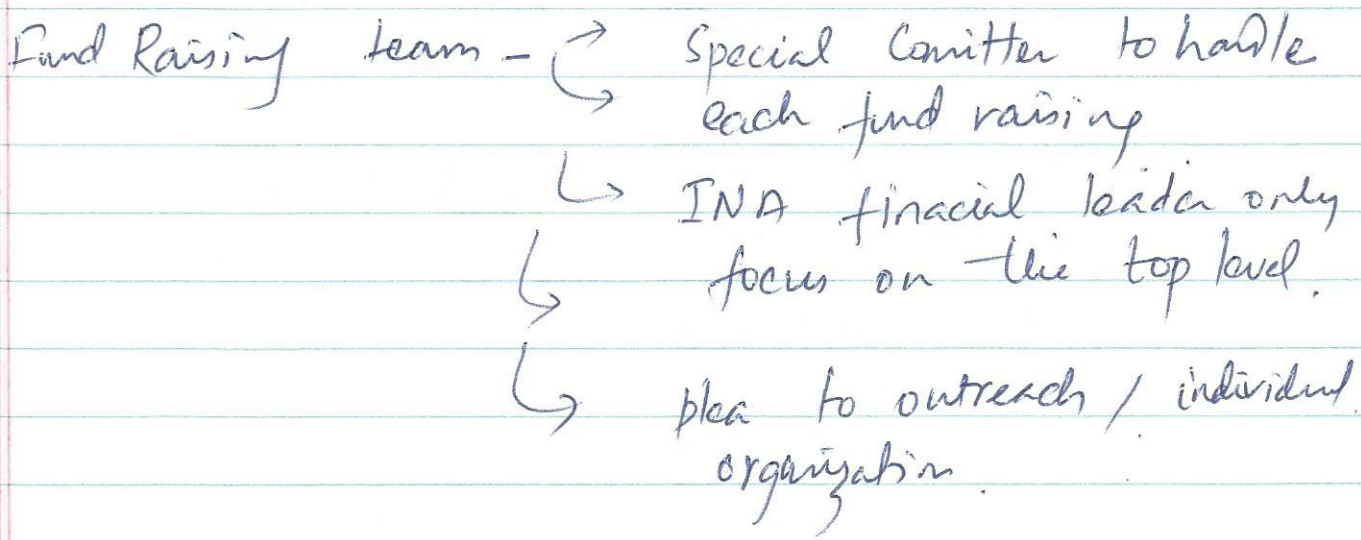 Fund Raising team - Special Comitter to handle
each fund raising
INA finacial leader only
focus on the top level.
plea to outreach / individul
organization.